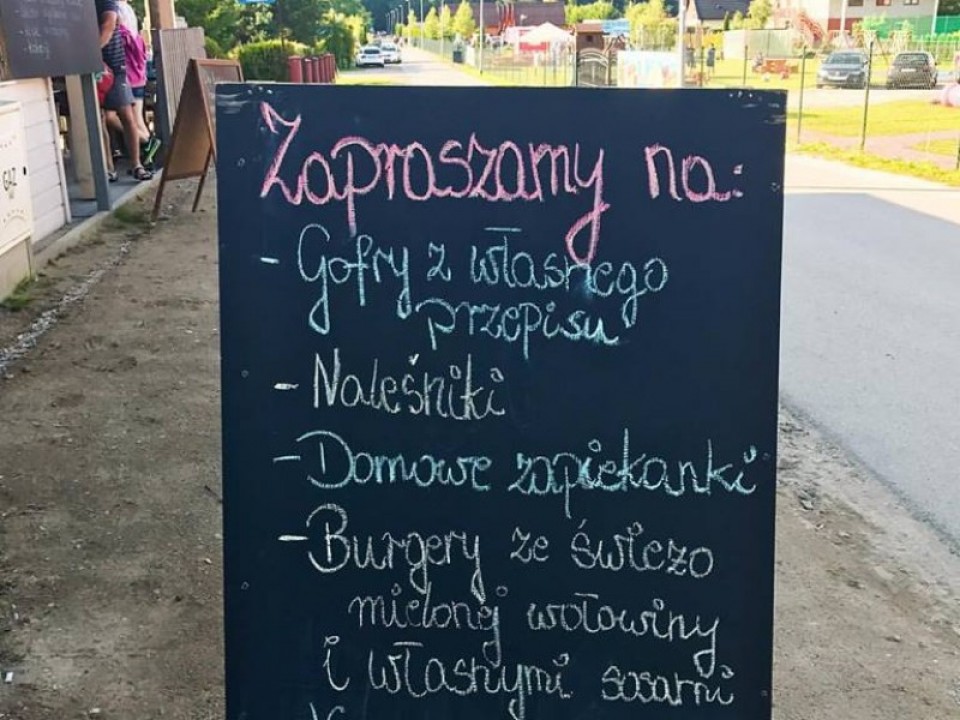 Zapraszamy na:
- Gofry z własnego
przepisu
- Naleśniki
- Domowe zapiekanki
- Burgery ze świeżo
mielonej wołowiny
i własnymi sosami
GAZ